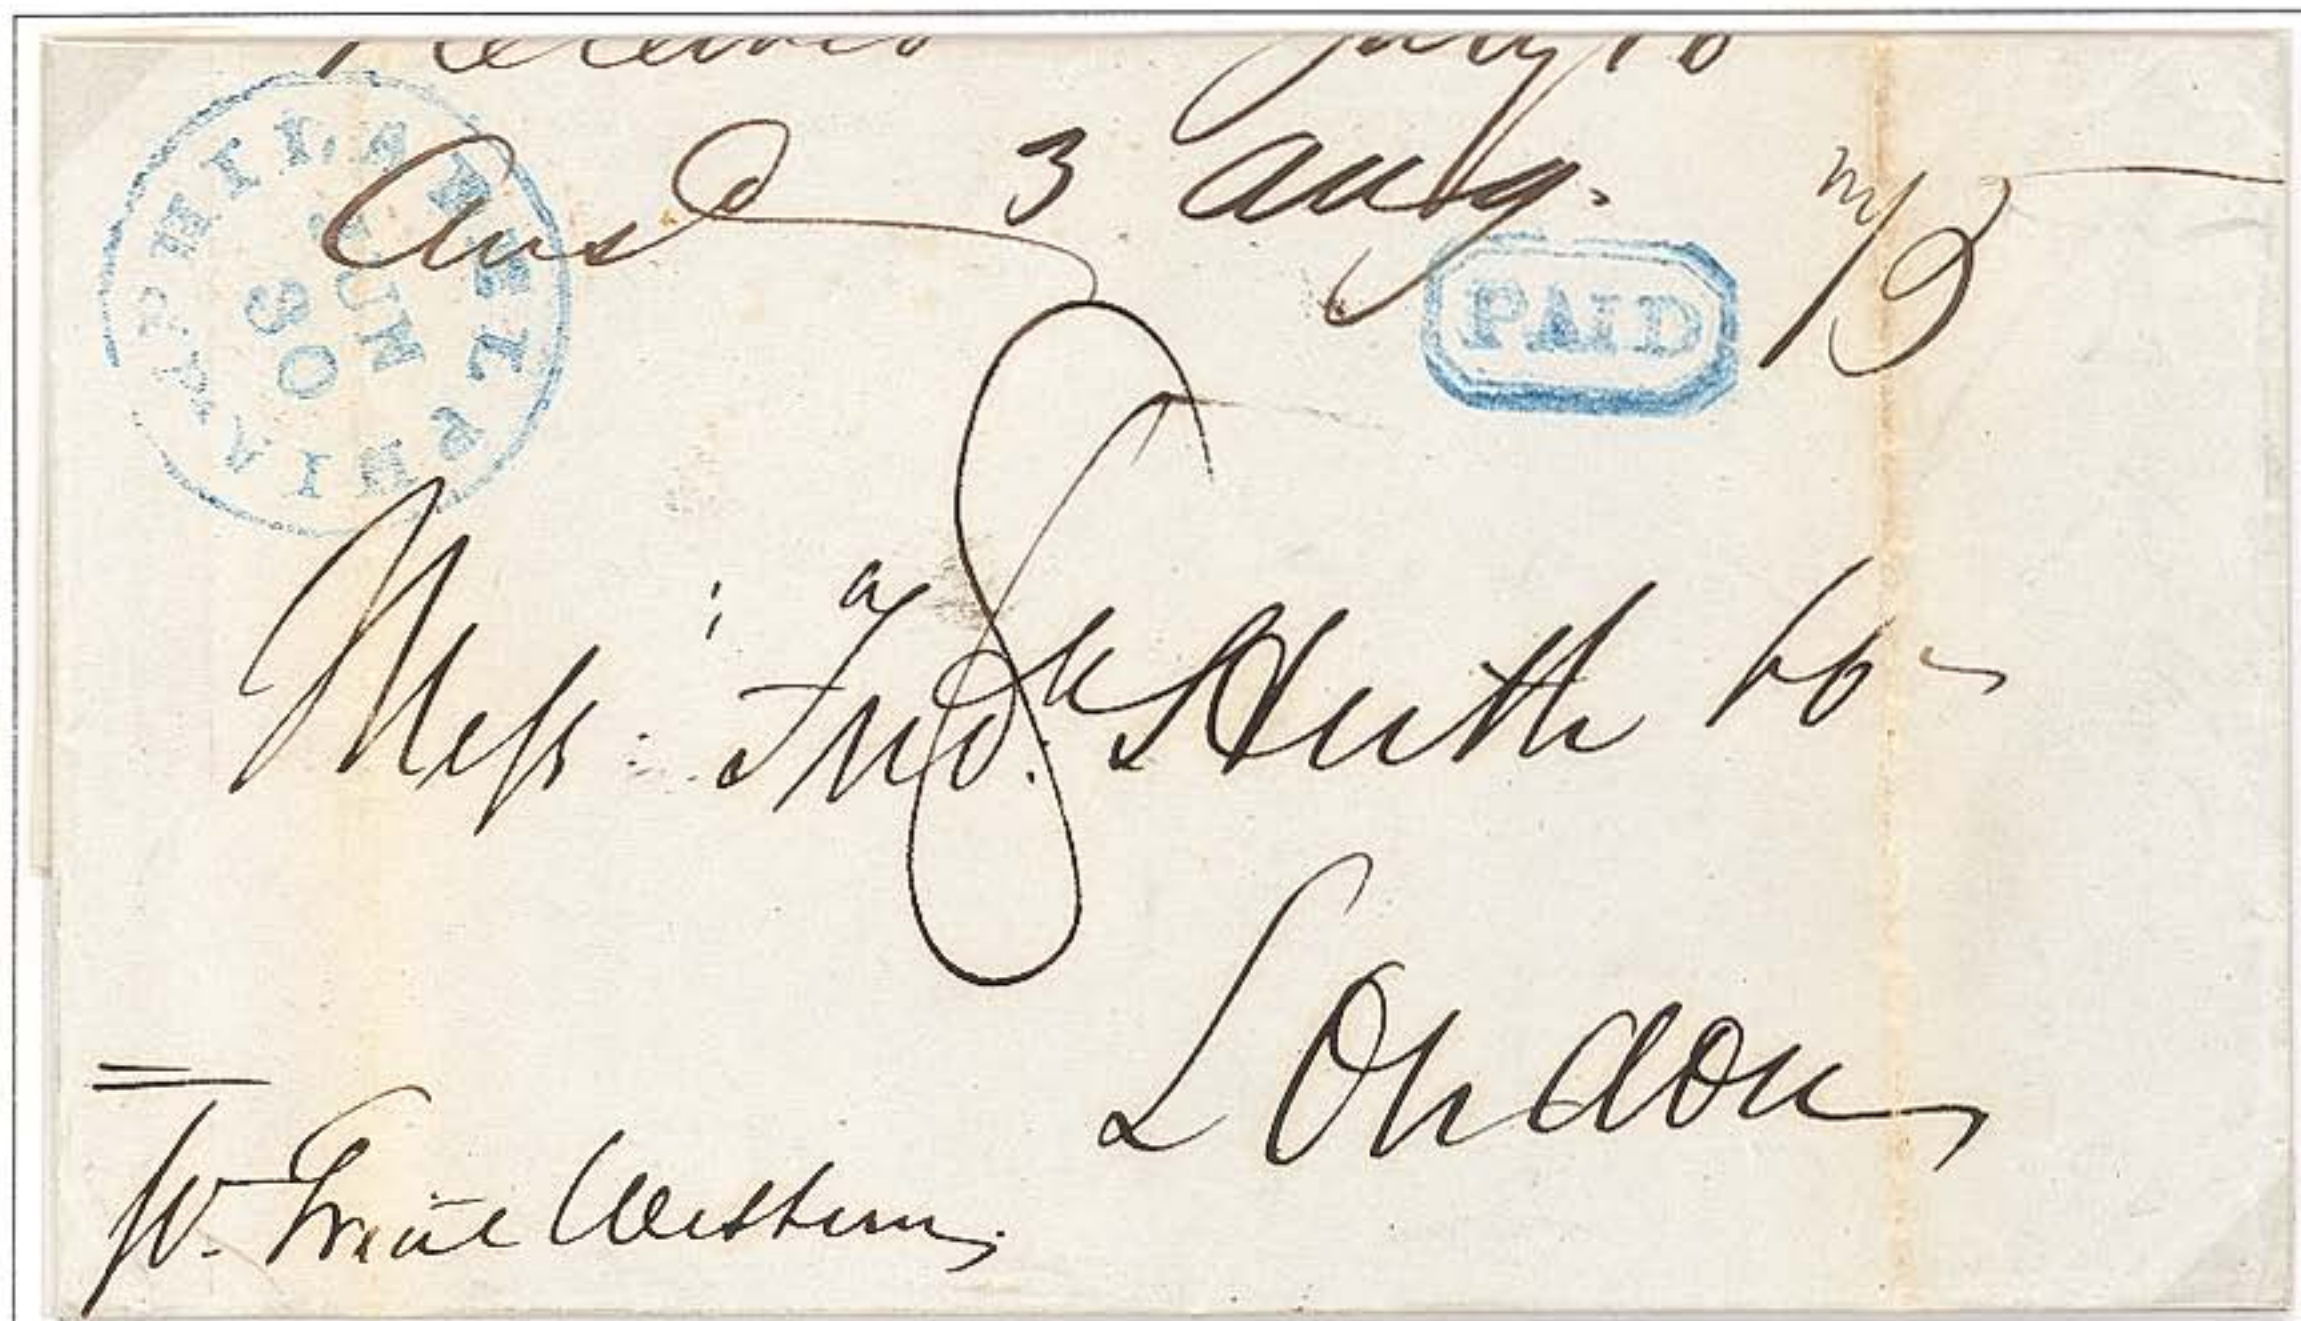 Received July 18
Ansd 3 Aug.
PHILADELPHIA Pa.
JUN
30
PAID
8
Mess: Fredk Huth Co
London
pr. Great Western